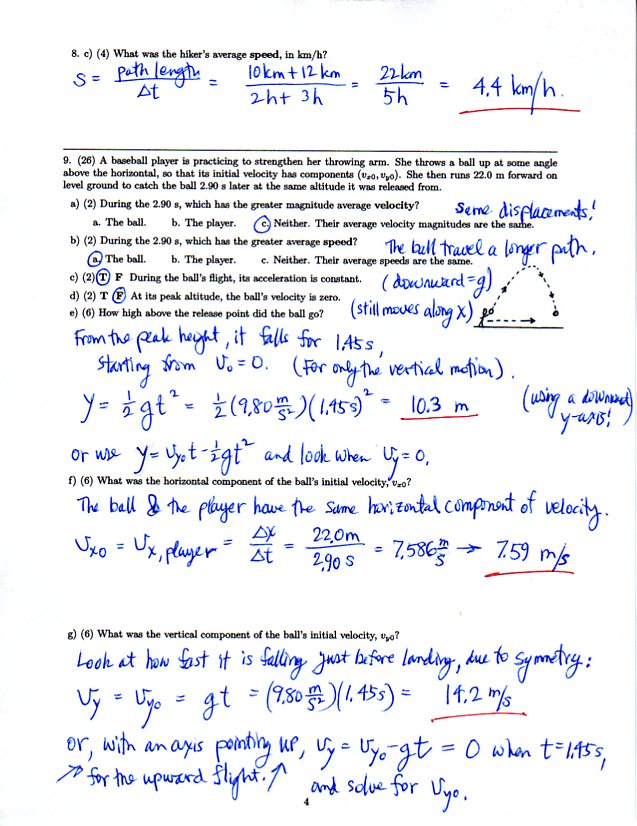 8. c) (4) What was the hiker's average speed, in km/h?
S = path length / Δt = 10km + 12 km / 2h + 3h = 22km / 5h = 4.4 km/h.
9. (26) A baseball player is practicing to strengthen her throwing arm. She throws a ball up at some angle
above the horizontal, so that its initial velocity has components (vx0, vy0). She then runs 22.0 m forward on
level ground to catch the ball 2.90 s later at the same altitude it was released from.
a) (2) During the 2.90 s, which has the greater magnitude average velocity? Same displacements!
a. The ball. b. The player. c. Neither. Their average velocity magnitudes are the same.
b) (2) During the 2.90 s, which has the greater average speed? The ball travel a longer path.
a. The ball. b. The player. c. Neither. Their average speeds are the same.
c) (2) T F During the ball's flight, its acceleration is constant. (downward = g)
d) (2) T F At its peak altitude, the ball's velocity is zero. (still moves along x)
e) (6) How high above the release point did the ball go?
From the peak height, it falls for 1.45 s,
starting from v0 = 0. (For only the vertical motion).
y = 1/2 gt² = 1/2 (9.80 m/s²)(1.45 s)² = 10.3 m (using a downward y-axis!)
or use y = vy0t - 1/2 gt² and look when vy = 0.
f) (6) What was the horizontal component of the ball's initial velocity, vx0?
The ball & the player have the same horizontal component of velocity.
vx0 = vx, player = Δx / Δt = 22.0m / 2.90 s = 7.586 m/s → 7.59 m/s
g) (6) What was the vertical component of the ball's initial velocity, vy0?
Look at how fast it is falling just before landing, due to symmetry:
vy = vy0 = gt = (9.80 m/s²)(1.45 s) = 14.2 m/s
or, with an axis pointing up, vy = vy0 - gt = 0 when t = 1.45 s,
↗ for the upward flight. ↗ and solve for vy0.
4